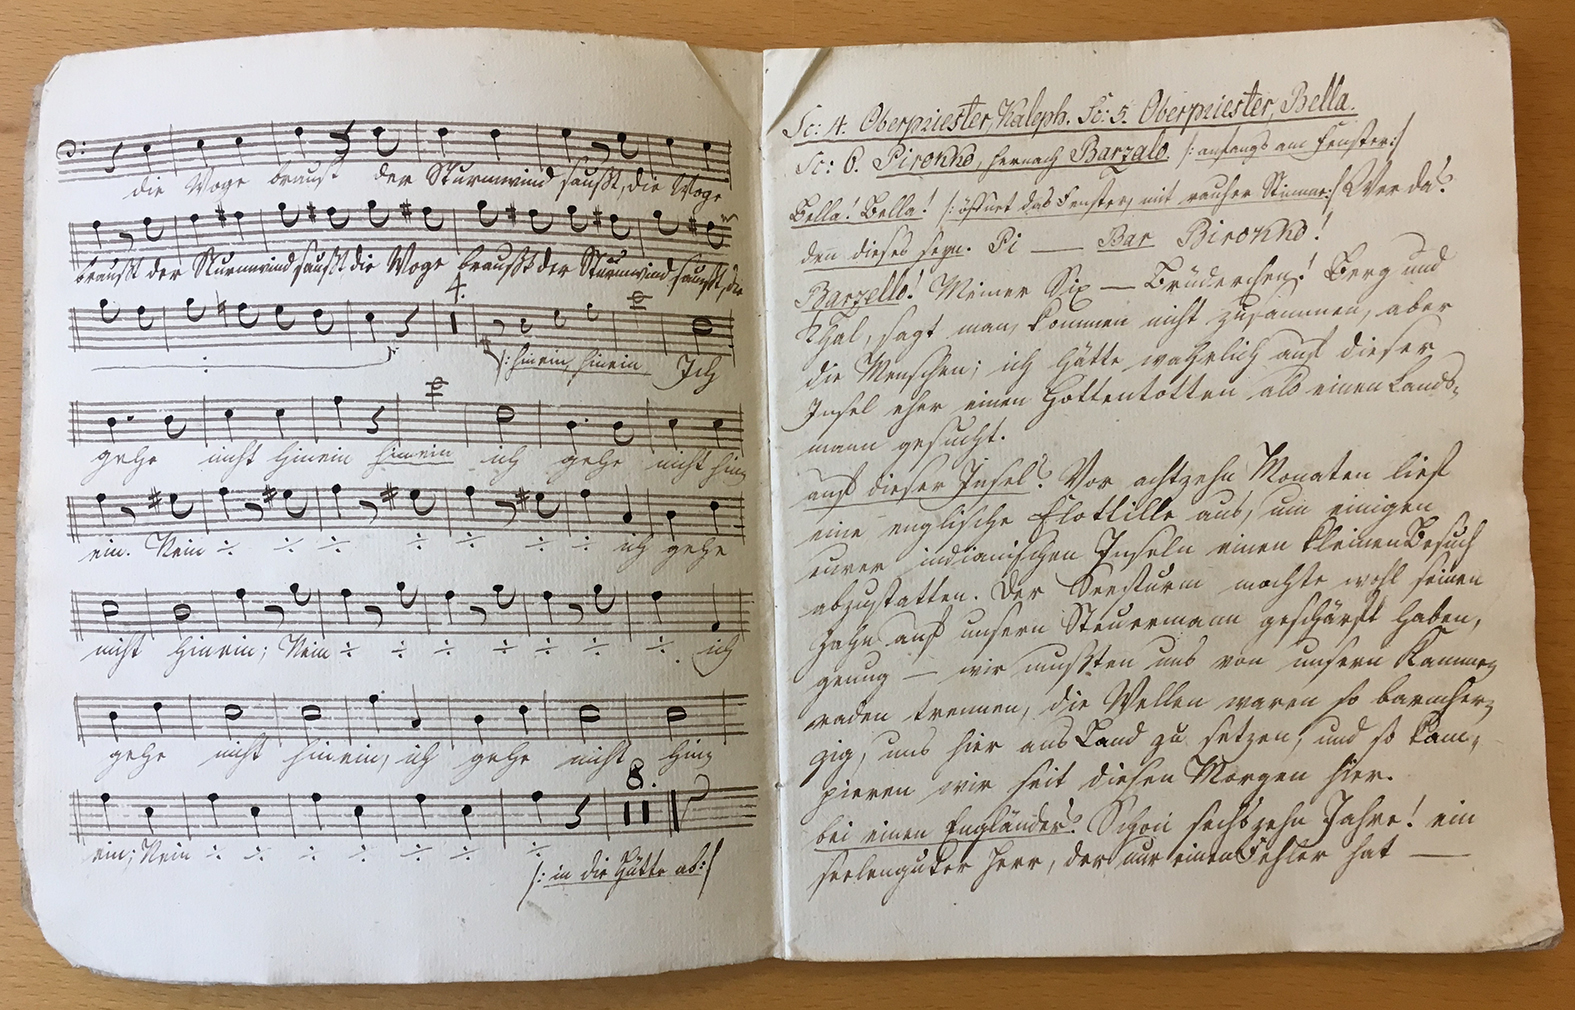 die Woge braust der Sturmwind saußt, die Woge
braußt der Sturmwind saußt die Woge braußt der Sturmwind saußt, die
4.
/: hinein, hinein Ich
gehe nicht hinein hinein ich gehe nicht hin=
ein. Nein ÷ ÷ ÷ ÷ ÷ ÷ ÷ ich gehe
nicht hinein; Nein ÷ ÷ ÷ ÷ ÷ ÷ ÷ ich
gehe nicht hinein, ich gehe nicht hin=
8.
ein; Nein ÷ ÷ ÷ ÷ ÷ ÷ ÷
/: in die Hütte ab :/
Sc: 4. Oberpriester, Kaleph. Sc: 5. Oberpriester, Bella.
Sc: 6. Pirokko, hernach Barzalo. /: anfangs am Fenster :/
Bella! Bella! /: öffnet das Fenster, mit rauher Stimme :/ Wer da?
den dieses seyn. Pi — Bar Birokko!
Barzello! Meiner Six — Brüderchen! Berg und
Thal, sagt man, kommen nicht zusammen, aber
die Menschen; ich hätte wahrlich auf dieser
Insel eher einen Hottentotten als einen Lands=
mann gesucht.
auf dieser Insel? Vor achtzehn Monaten lief
eine englische Flottille aus, um einigen
eurer indianischen Inseln einen kleinen Besuch
abzustatten. Der Seesturm mochte wohl seinen
Zahn auf unsern Steuermann geschärft haben,
genug — wir mußten uns von unsern Kamme=
raden trennen, die Wellen waren so barmher=
zig, uns hier ans Land zu setzen, und so kam=
pieren wir seit diesen Morgen hier.
bei einen Engländer? Schon sechszehn Jahre! ein
seelenguter Herr, der nur einen Fehler hat —